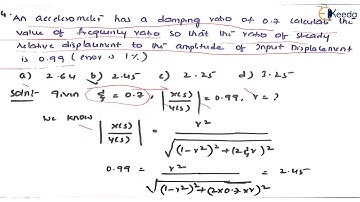 4. An accelerometer has a damping ratio of 0.7 calculate the
Ekeeda
value of frequency ratio so that the ratio of steady
relative displacement to the amplitude of Input Displacement
is 0.99 (error is 1%)
a) 2.64 b) 2.45 c) 2.25 d) 3.25
Soln:- given ξ = 0.7, |x(s)/y(s)| = 0.99, r = ?
we know |x(s)/y(s)| = r² / √((1-r²)²+(2ξr)²)
0.99 = r² / √((1-r²)²+(2×0.7×r)²) = 2.45